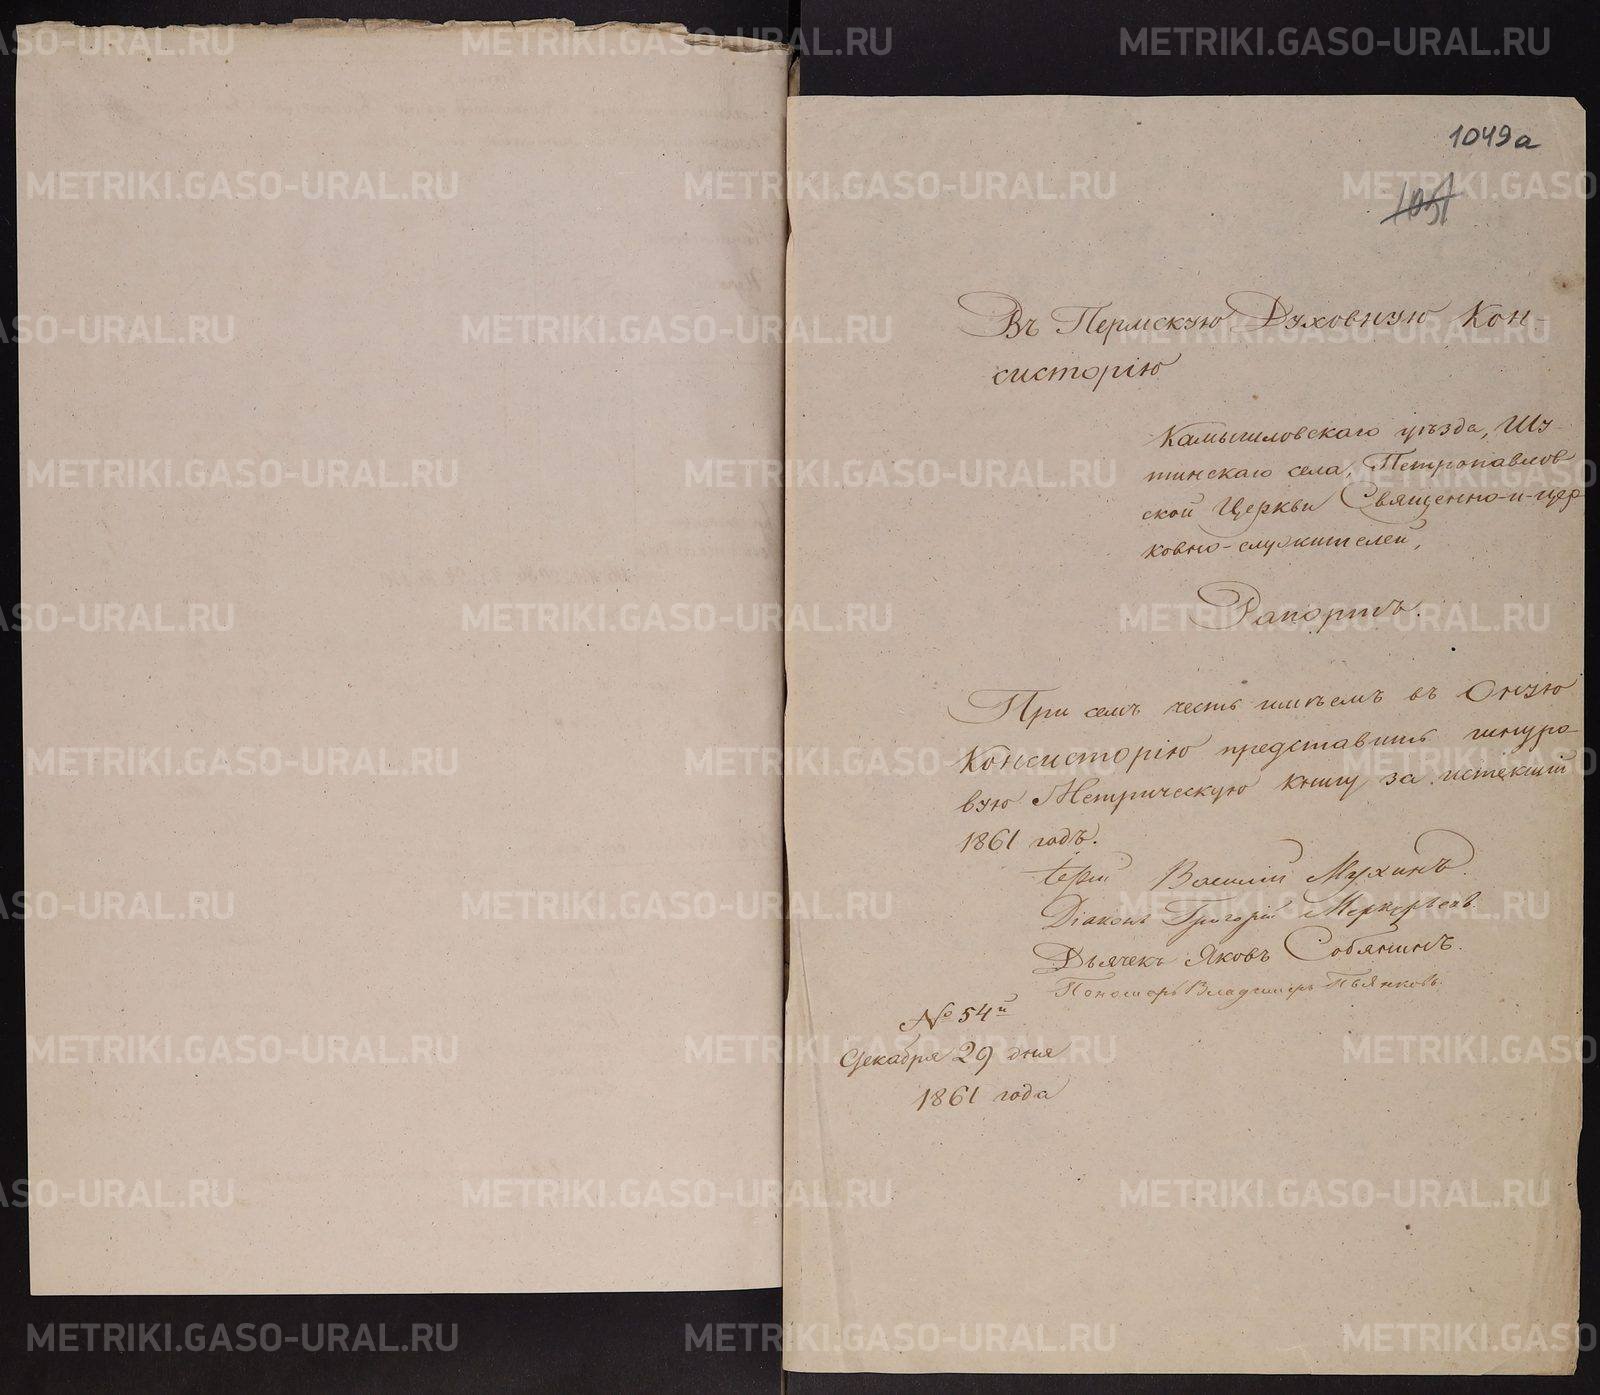 1049а
1051
Въ Пермскую Духовную Кон-
систорію
Камышловскаго уѣзда, Шу-
тинскаго села, Петропавлов
ской Церкви Священно-и-цер
ковно-служителей,
Рапортъ.
При семъ честь имѣемъ въ Оную
Консисторію представить шнуро-
вую Метрическую книгу за истекшій
1861 годъ.
Іерей Василій Мухинъ.
Діаконъ Григорій
Дьячекъ Яковъ Собянинъ.
Пономарь Владимиръ Пьянковъ.
№ 54й
Декабря 29 дня
1861 года
METRIKI.GASO-URAL.RU